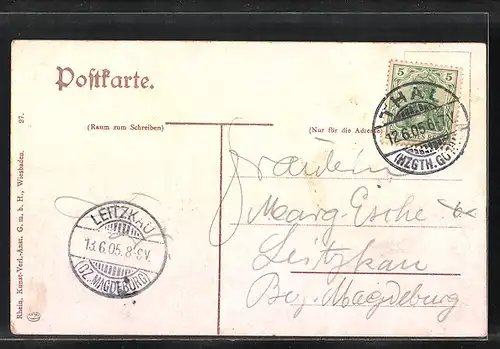 Postkarte.
(Raum zum Schreiben)
(Nur für die Adresse)
5 5
THAL
12.6.05.
(HZGTH.GOTHA)
Fräulein
Marg. Esche
Leitzkau
Bez. Magdeburg
LEITZKAU
13.6.05. 8-9V.
(BZ. MAGDEBURG)
Rhein. Kunst-Verl.-Anst. G. m. b. H., Wiesbaden.
27.